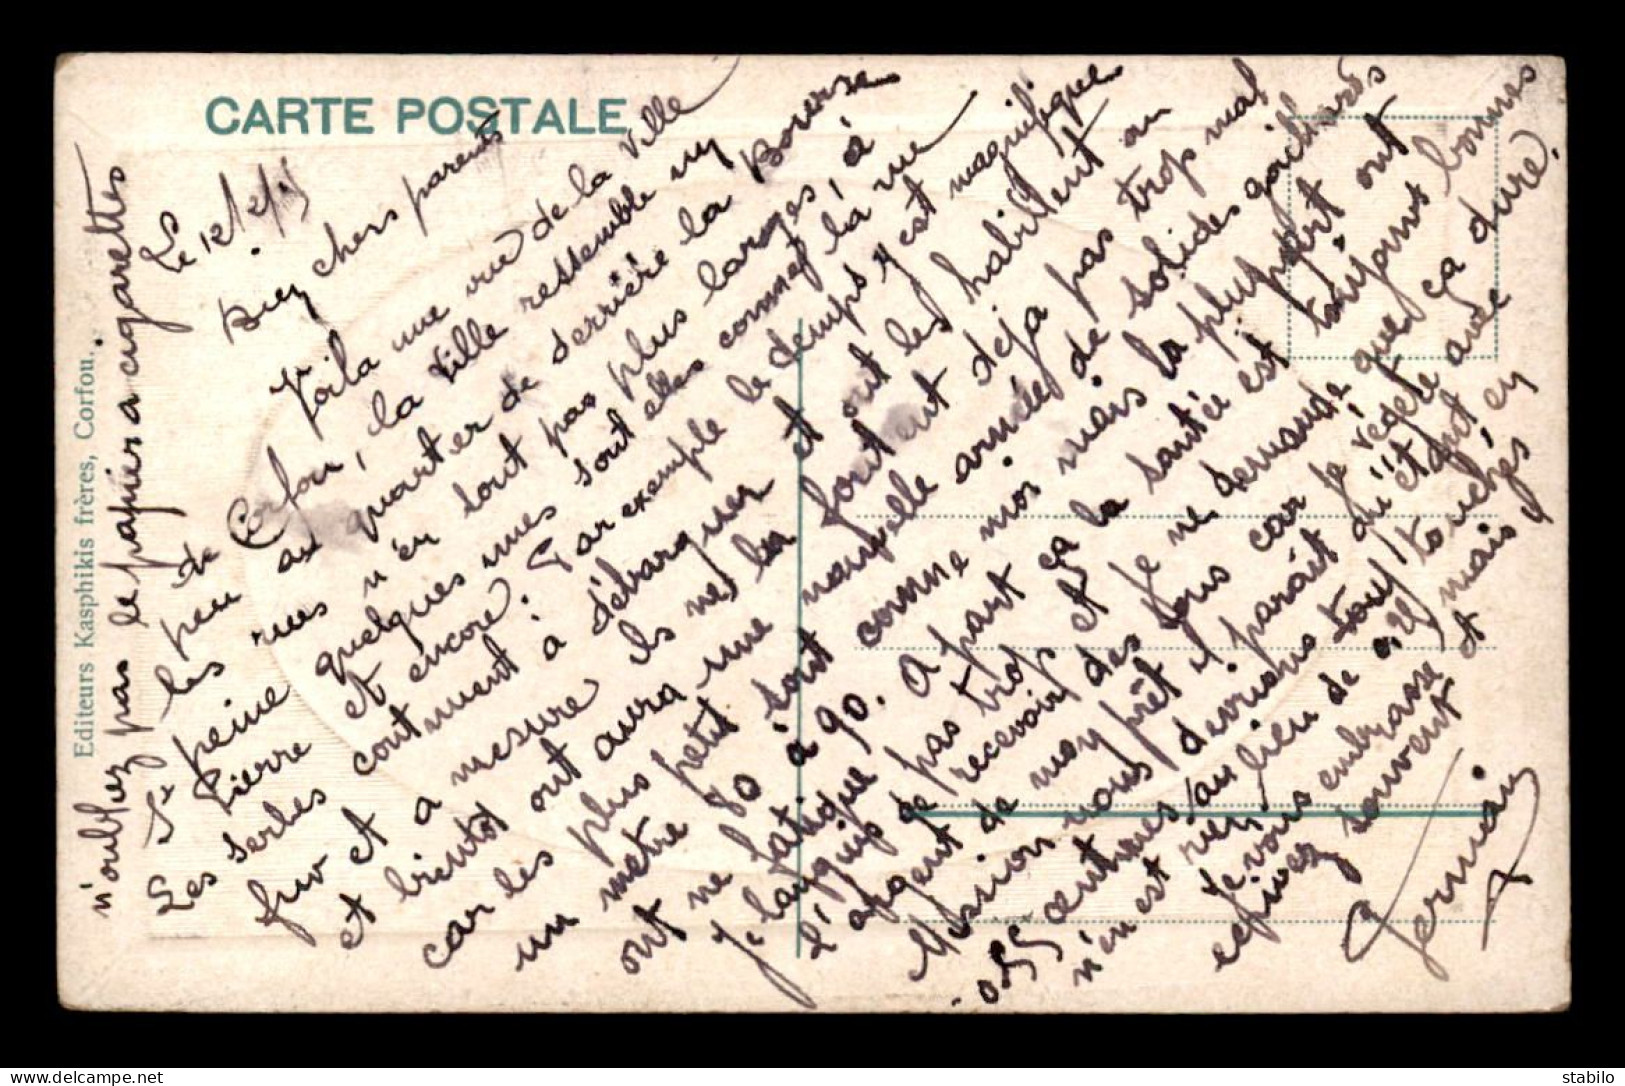 CARTE POSTALE
Editeurs Kasphikis frères, Corfou.
n'oubliez pas le papier a cigarettes
Le 12/2/15
Bien chers parents
Voila une vue de la ville
de Corfou, la ville ressemble un
peu au quartier de derrière la Bourse
les rues n'en sont pas plus larges, à
peine quelques unes sont elles comme la rue
St Pierre et encore. Par exemple le temps y est magnifique
Les serbes continuent à débarquer et
fur et a mesure ils les habillent on
et bientot ont aura une nouvelle armée de solides gaillards
car les plus petit sont comme moi mais la plupart ont
un mètre 80 à 90. A part ça la santée est toujours bonnes
ont ne fatigue pas trop et je me demande que ça dure.
Je languis de recevoir des sous car je végète avec
l'argent de mon prêt il parait qu'étant en
Mission nous devrions toucher
0.55 centimes au lieu de 0.25 mais
n'en est rien
Je vous embrasse et
écrivez souvent
Germain
stabilo